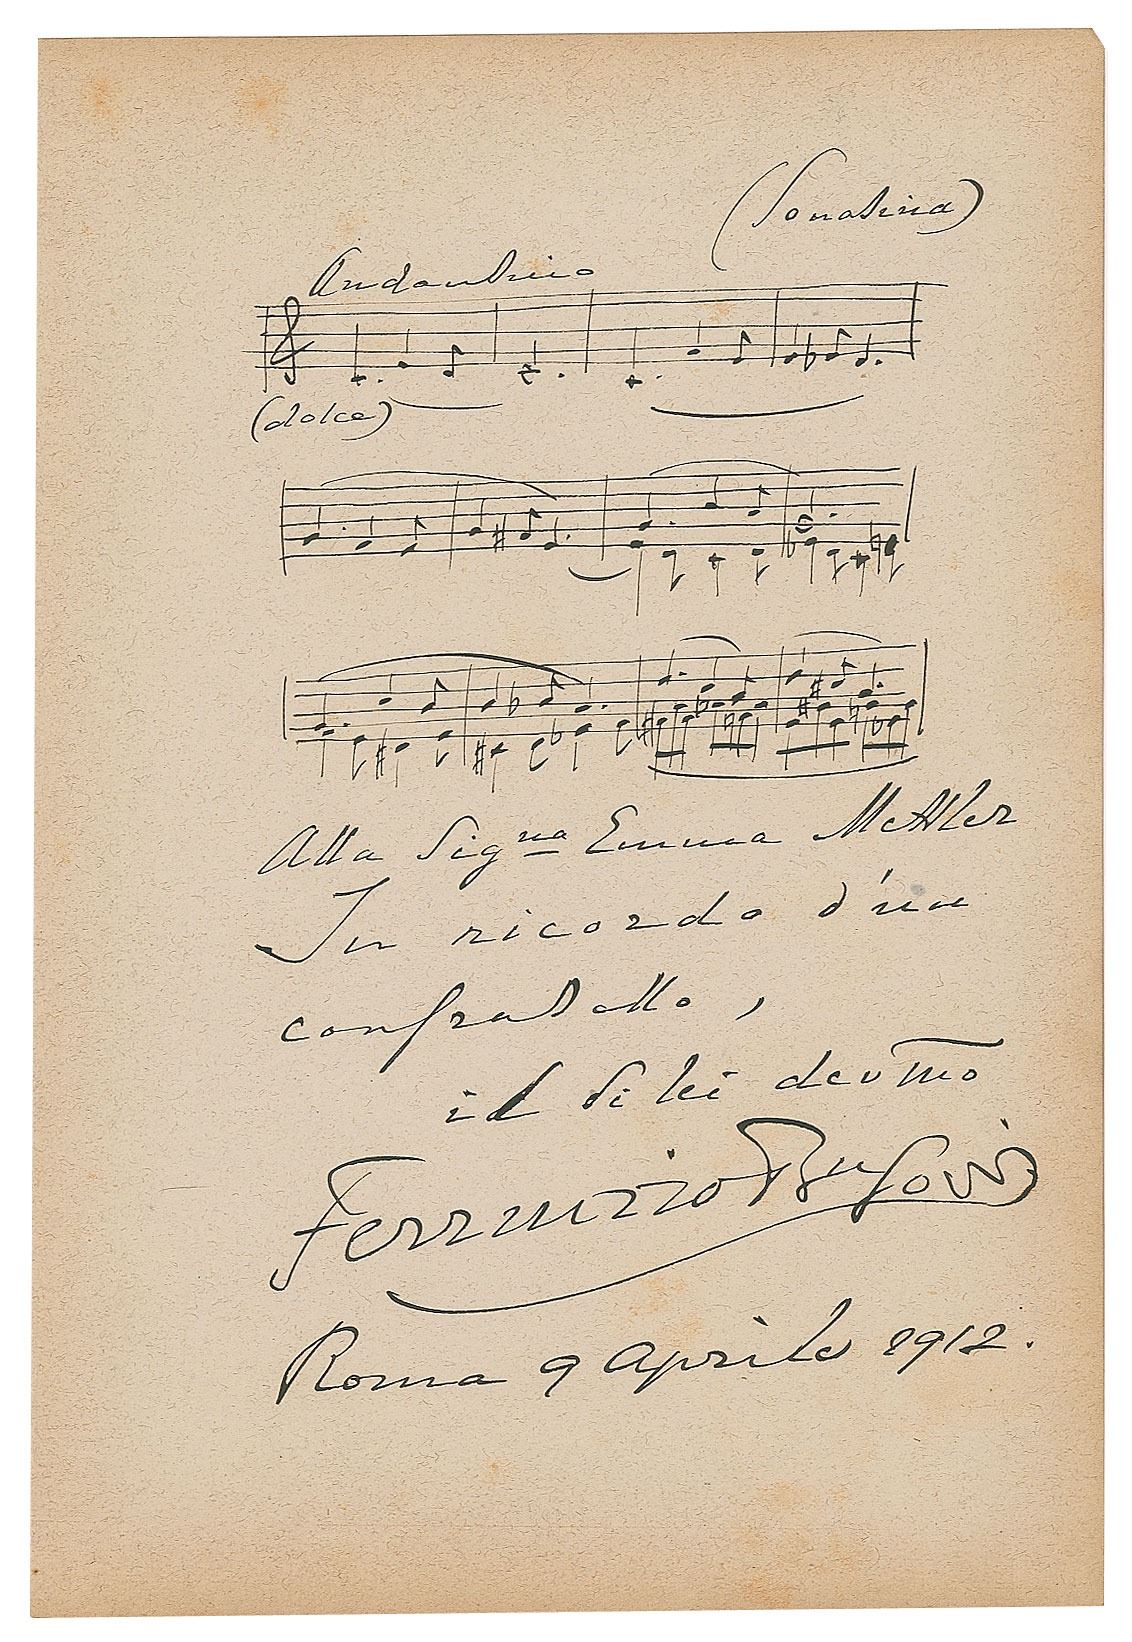 (Sonatina)
Andantino
(dolce)
Alla Signa Emma Mettler
In ricordo d'un
confratello,
il di lei devmo
Ferruccio Busoni
Roma 9 Aprile 1912.